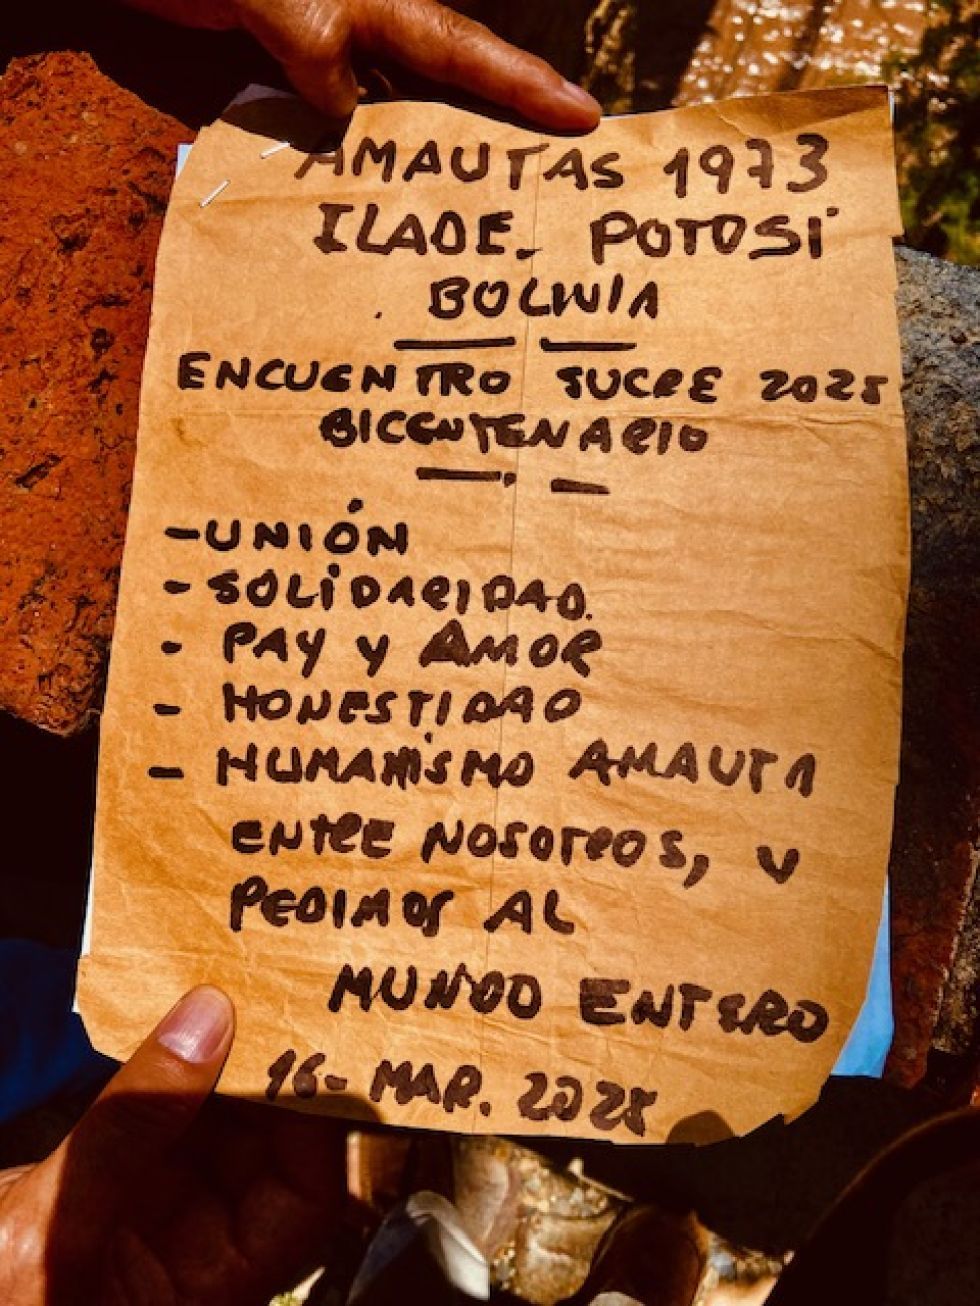 AMAUTAS 1973
ILADE. POTOSí
BOLIVIA
ENCUENTRO SUCRE 2025
BICENTENARIO
- UNIÓN
- SOLIDARIDAD.
- PAZ Y AMOR
- HONESTIDAD
- HUMANISMO AMAUTA
ENTRE NOSOTROS, Y
PEDIMOS AL
MUNDO ENTERO
16- MAR. 2025